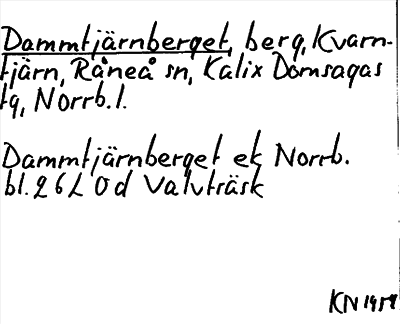 Dammtjärnberget, berg, Kvarn-
tjärn, Råneå sn, Kalix Domsagas
tg, Norrb. l.
Dammtjärnberget ek Norrb.
bl. 26L 0d Valvträsk
KN